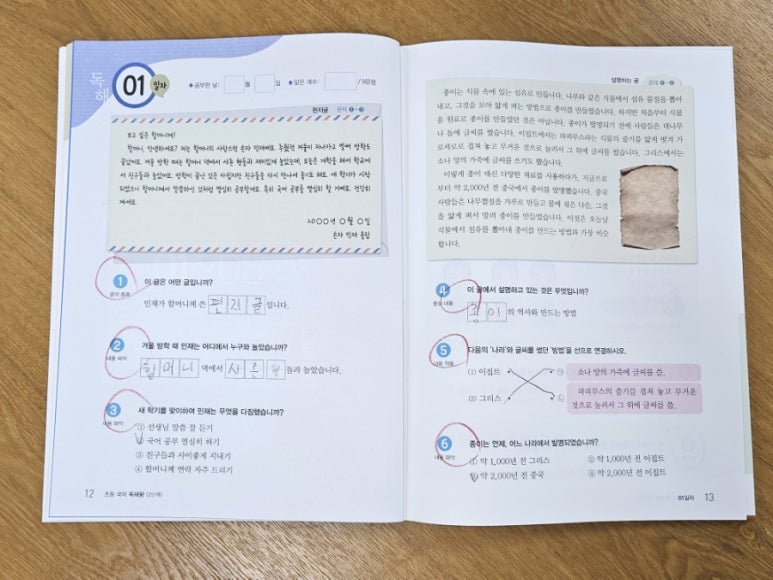 독해
01 일차
◆ 공부한 날: 월 일 ◆ 맞은 개수: / 9문항
편지글 문제 1~3
보고 싶은 할머니께!
할머니, 안녕하세요? 저는 할머니의 사랑스런 손자 민재예요. 추웠던 겨울이 지나가고 벌써 방학도
끝났어요. 겨울 방학 때는 할머니 댁에서 사촌 형들과 재미있게 놀았는데, 오늘은 개학을 해서 학교에
서 친구들과 놀았어요. 방학이 끝난 것은 아쉽지만 친구들을 다시 만나서 좋기도 해요. 새 학기가 시작
되었으니 할머니께서 말씀하신 것처럼 열심히 공부할게요. 특히 국어 공부를 열심히 할 거예요. 건강하
세요.
20○○년 ○월 ○일
손자 민재 올림
1 이 글은 어떤 글입니까?
글의 종류
민재가 할머니께 쓴 편지글입니다.
2 겨울 방학 때 민재는 어디에서 누구와 놀았습니까?
내용 파악
할머니 댁에서 사촌 들과 놀았습니다.
3 새 학기를 맞이하여 민재는 무엇을 다짐했습니까?
내용 파악
① 선생님 말씀 잘 듣기
국어 공부 열심히 하기
③ 친구들과 사이좋게 지내기
④ 할머니께 연락 자주 드리기
12 초등 국어 독해왕 (2단계)
설명하는 글 문제 4~6
종이는 식물 속에 있는 섬유로 만듭니다. 나무와 같은 식물에서 섬유 물질을 뽑아
내고, 그것을 모아 얇게 펴는 방법으로 종이를 만들었습니다. 하지만 처음부터 식물
을 원료로 종이를 만들었던 것은 아닙니다. 종이가 발명되기 전에 사람들은 대나무
나 돌에 글씨를 썼습니다. 이집트에서는 파피루스라는 식물의 줄기를 얇게 벗겨 가
로세로로 겹쳐 놓고 무거운 것으로 눌러서 그 위에 글씨를 썼습니다. 그리스에서는
소나 양의 가죽에 글씨를 쓰기도 했습니다.
이렇게 종이 대신 다양한 재료를 사용하다가, 지금으로
부터 약 2,000년 전 중국에서 종이를 발명했습니다. 중국
사람들은 나무껍질을 가루로 만들고 물에 섞은 다음, 그것
을 얇게 펴서 말려 종이를 만들었습니다. 이것은 오늘날
식물에서 섬유를 뽑아내 종이를 만드는 방법과 가장 비슷
합니다.
4 이 글에서 설명하고 있는 것은 무엇입니까?
중심 내용
종이의 역사와 만드는 방법
5 다음의 '나라'와 글씨를 썼던 '방법'을 선으로 연결하시오.
내용 적용
(1) 이집트 ㉠ 소나 양의 가죽에 글씨를 씀.
(2) 그리스 ㉡ 파피루스의 줄기를 겹쳐 놓고 무거운
것으로 눌러서 그 위에 글씨를 씀.
6 종이는 언제, 어느 나라에서 발명되었습니까?
내용 파악
① 약 1,000년 전 그리스 ② 약 1,000년 전 이집트
약 2,000년 전 중국 ④ 약 2,000년 전 이집트
01일차 13